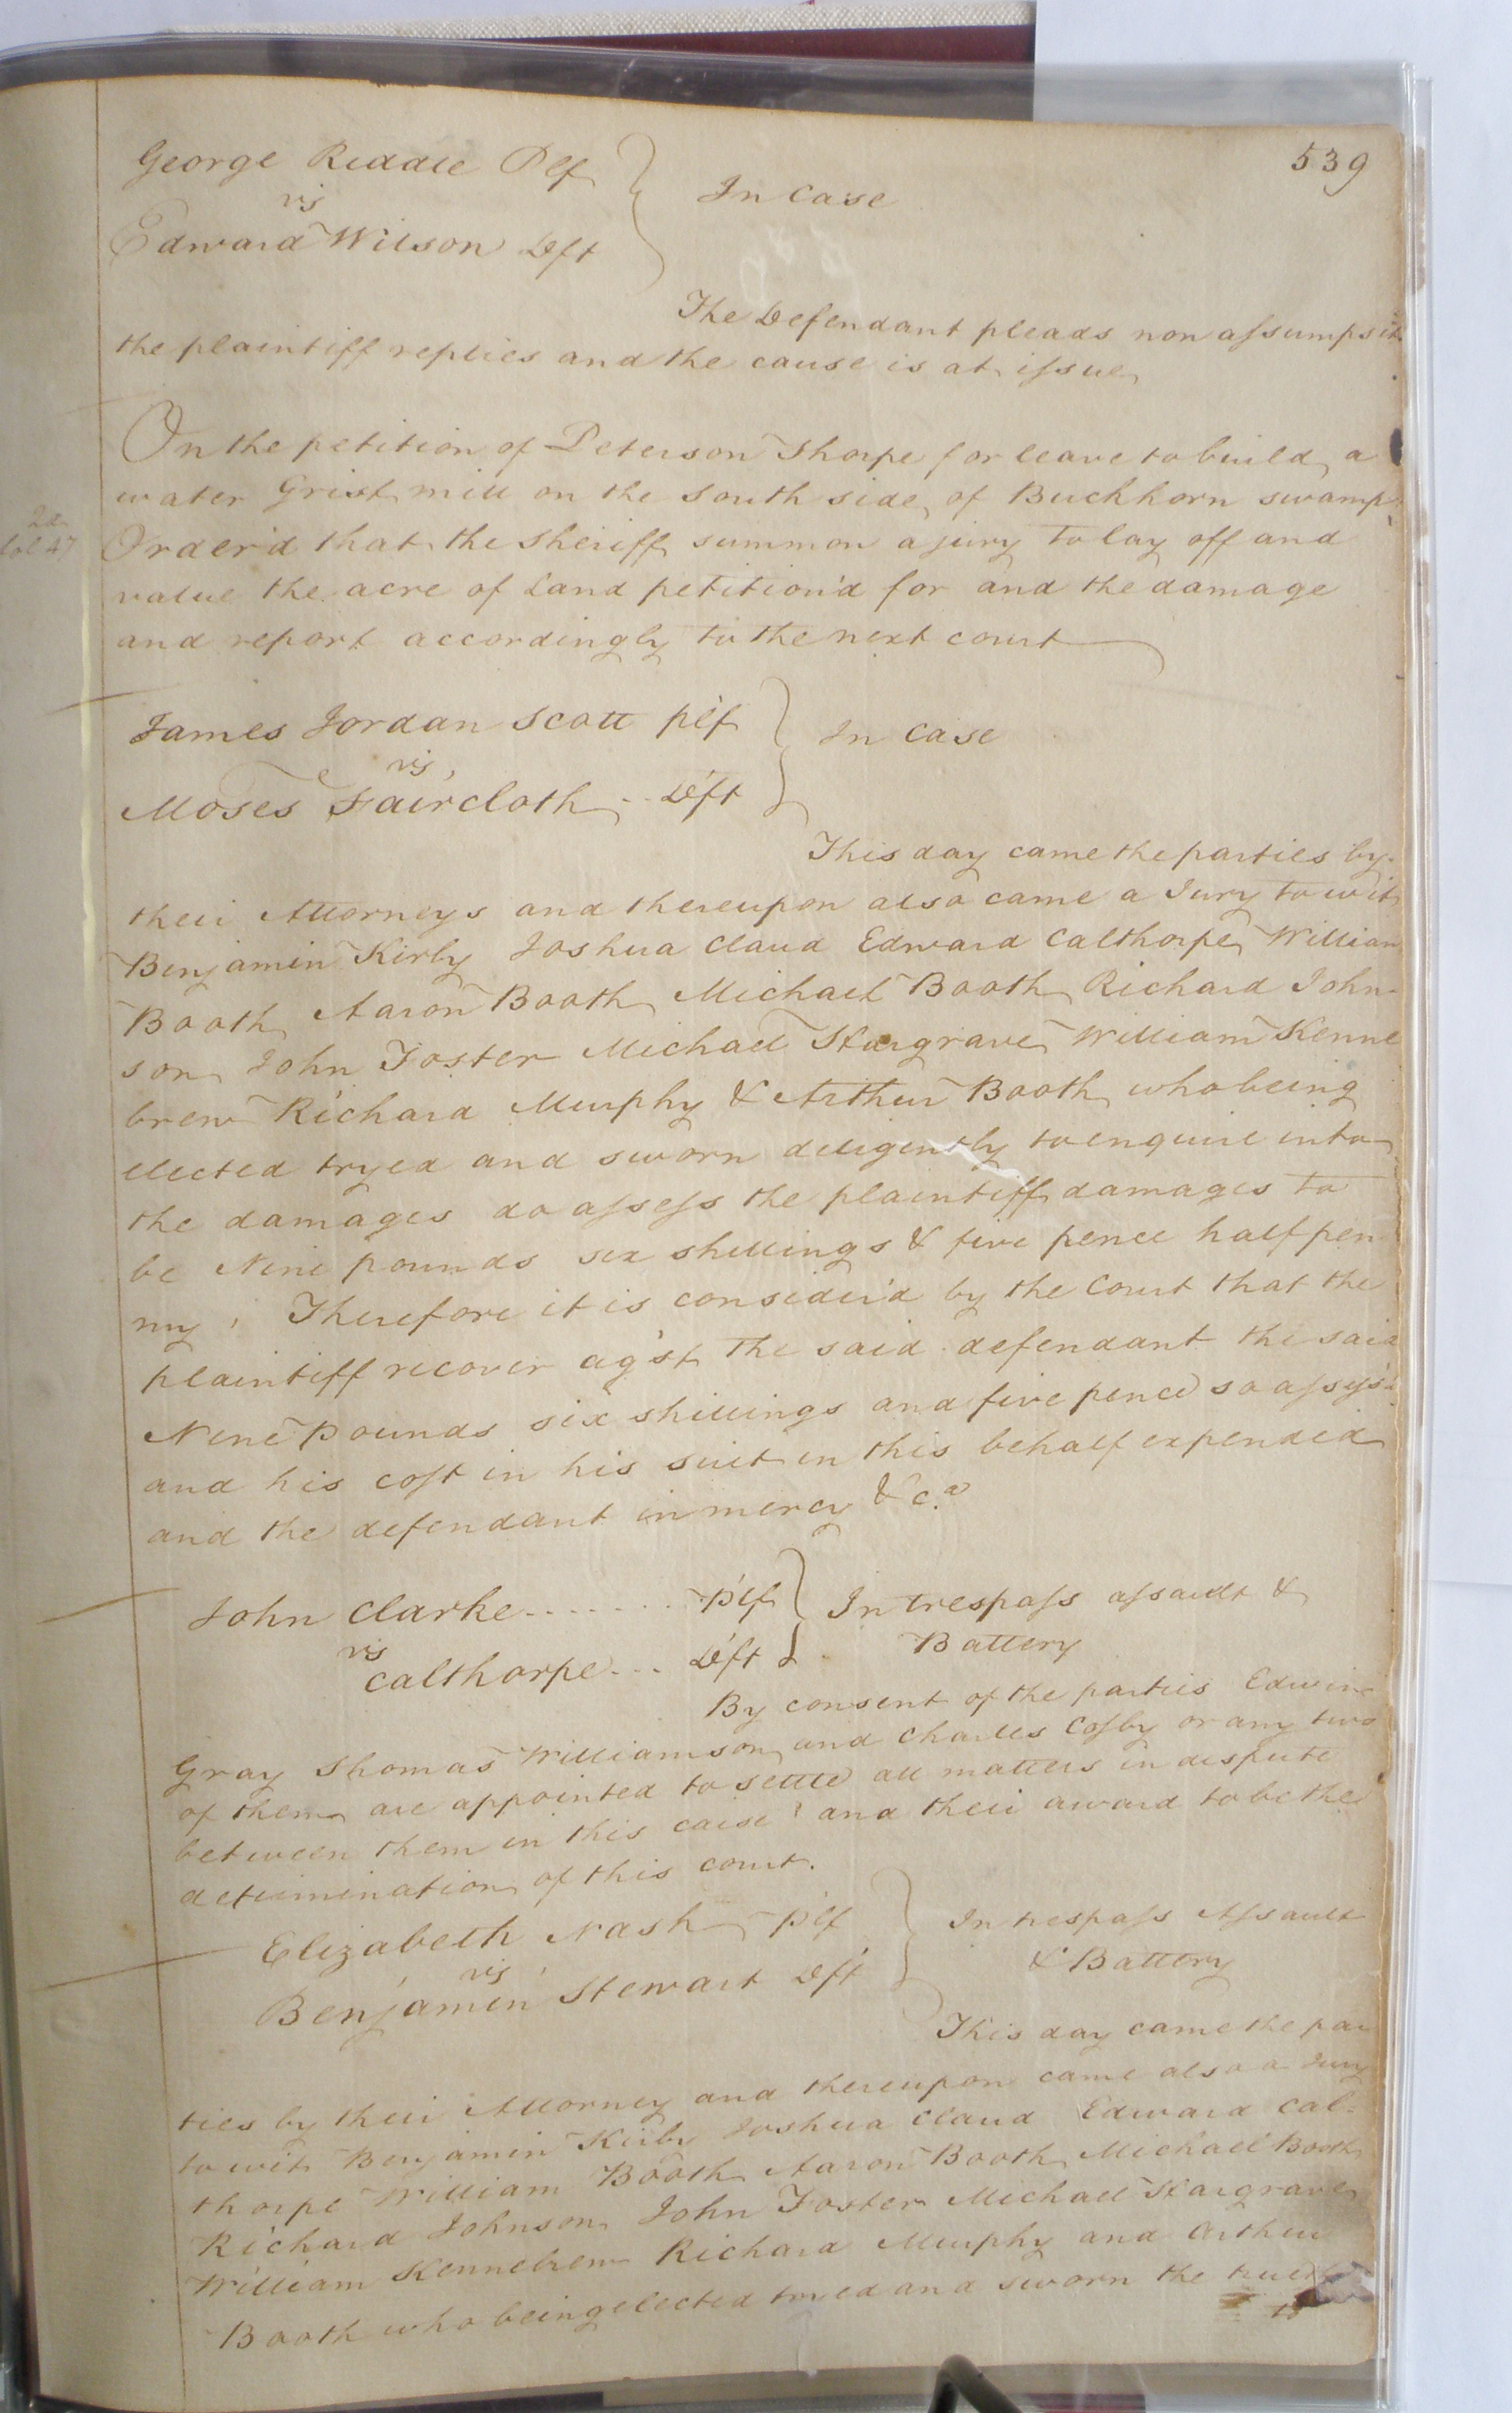 539
George Riddle Plf
vs
Edward Wilson Deft
In Case
The Defendant pleads non assumpsit
the plaintiff replies and the cause is at issue
On the petition of Peterson Thorpe for leave to build a
water Grist mill on the south side of Buckhorn swamp
Order'd that the Sheriff summon a jury to lay off and
value the acre of Land petition'd for and the damage
and report accordingly to the next court
James Jordan Scott plf
vs
Moses Faircloth .. Deft
In Case
This day came the parties by
their Attorneys and thereupon also came a Jury to wit
Benjamin Kirby Joshua Claud Edward Calthorpe William
Booth Aaron Booth Michael Booth Richard John-
son John Foster Michael Hargrave William Kenne
brew Richard Murphy & Arthur Booth who being
elected tryed and sworn diligently to enquire into
the damages do assess the plaintiff damages to
be Nine pounds six shillings & five pence half pen
ny, Therefore it is consider'd by the Court that the
plaintiff recover ag'st the said defendant the said
Nine Pounds six shillings and five pence so assess'd
and his cost in his suit in this behalf expended
and the defendant in mercy &c.a
John Clarke ........ plf
vs
Calthorpe ... Deft
In trespass assault &
Battery
By consent of the parties Edwin
Gray Thomas Williamson and Charles Cosby or any two
of them are appointed to settle all matters in dispute
between them in this caise and their award to be the
determination of this court.
Elizabeth Nash plf
vs
Benjamin Stewart Deft
In trespass Assault
& Battery
This day came the par
ties by their Attorney and thereupon came also a Jury
to wit Benjamin Kirby Joshua Claud Edward Cal-
thorpe William Booth Aaron Booth Michael Booth
Richard Johnson John Foster Michael Hargrave
William Kennebrew Richard Murphy and Arthur
Booth who being elected tried and sworn the truth
to